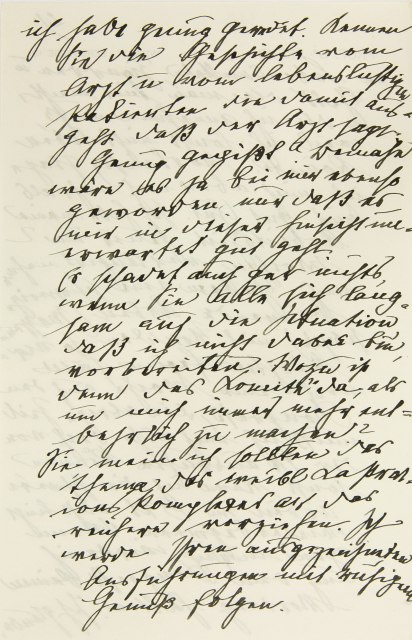 ich habe genug geredet. Kennen
Sie die Geschichte vom
Arzt u vom lebenslustigen
Patienten die damit aus-
geht daß der Arzt sagt:
Genug Beinahe
wäre es ja bei mir ebenso
geworden nur daß es
mir in dieser Hinsicht un-
erwartet gut geht
Es schadet auch gar nichts,
wenn Sie alle sich lang-
sam auf die Situation
daß ich nicht dabei bin,
vorbereiten. Wozu ist
denn das Komité da, als
um mich immer mehr ent-
behrlich zu machen?
Sie mein ich sollten das
Thema des weibl Kastrat-
ionskomplexes als das
reichere vorziehen. Ich
werde Ihren ausgezeichneten
Ausführungen mit ruhigem
Genuß folgen.